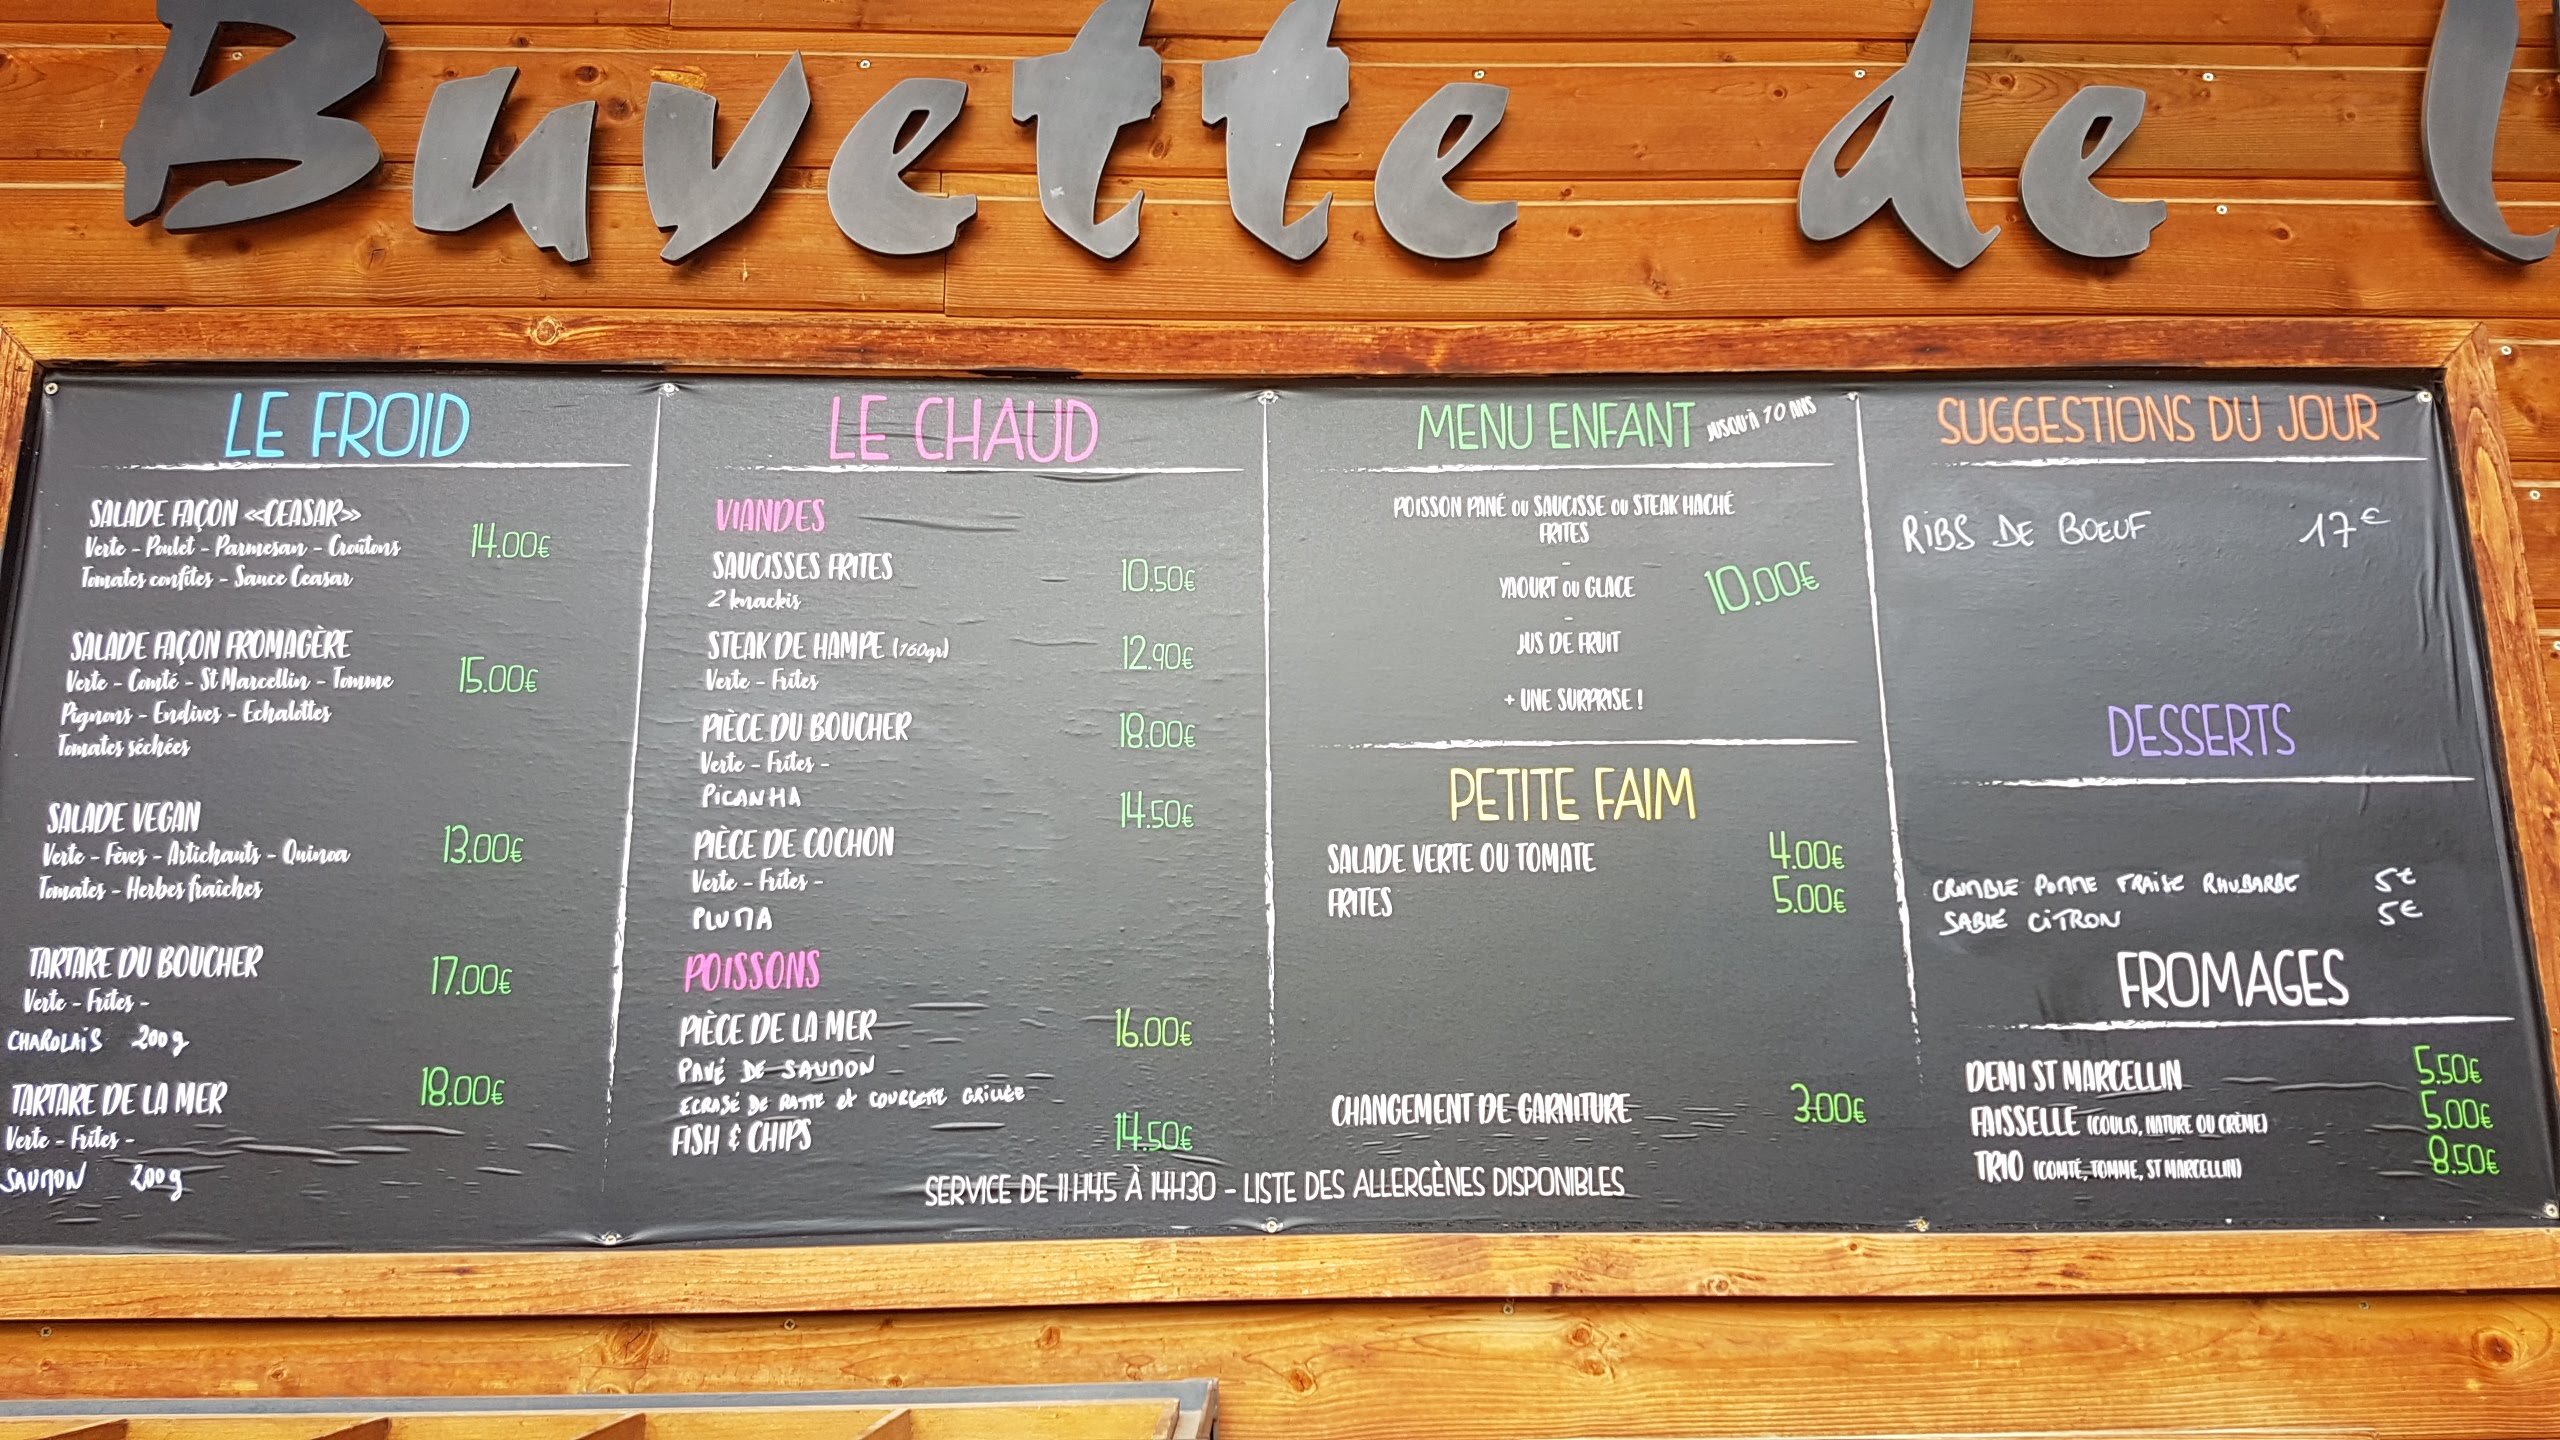 Buvette de l
LE FROID
SALADE FAÇON «CEASAR»
Verte - Poulet - Parmesan - Croûtons
Tomates confites - Sauce Ceasar
14.00€
SALADE FAÇON FROMAGÈRE
Verte - Comté - St Marcellin - Tomme
Pignons - Endives - Echalottes
Tomates séchées
15.00€
SALADE VEGAN
Verte - Fèves - Artichauts - Quinoa
Tomates - Herbes fraîches
13.00€
TARTARE DU BOUCHER
Verte - Frites -
CHAROLAIS 200g
17.00€
TARTARE DE LA MER
Verte - Frites -
SAUMON 200g
18.00€
LE CHAUD
VIANDES
SAUCISSES FRITES
2 knackis
10.50€
STEAK DE HAMPE (160gr)
Verte - Frites
12.90€
PIÈCE DU BOUCHER
Verte - Frites -
PICANHA
18.00€
PIÈCE DE COCHON
Verte - Frites -
PLUMA
14.50€
POISSONS
PIÈCE DE LA MER
PAVÉ DE SAUMON
ECRASÉ DE RATTE et COURGETTE GRILLÉE
16.00€
FISH & CHIPS
14.50€
MENU ENFANT JUSQU'À 10 ANS
POISSON PANÉ OU SAUCISSE OU STEAK HACHÉ
FRITES
-
YAOURT OU GLACE
-
JUS DE FRUIT
+ UNE SURPRISE !
10.00€
PETITE FAIM
SALADE VERTE OU TOMATE 4.00€
FRITES 5.00€
CHANGEMENT DE GARNITURE 3.00€
SUGGESTIONS DU JOUR
RIBS DE BOEUF 17€
DESSERTS
CRUMBLE POMME FRAISE RHUBARBE 5€
SABLE CITRON 5€
FROMAGES
DEMI ST MARCELLIN 5.50€
FAISSELLE (COULIS, NATURE OU CRÈME) 5.00€
TRIO (COMTÉ, TOMME, ST MARCELLIN) 8.50€
SERVICE DE 11H45 À 14H30 - LISTE DES ALLERGÈNES DISPONIBLES